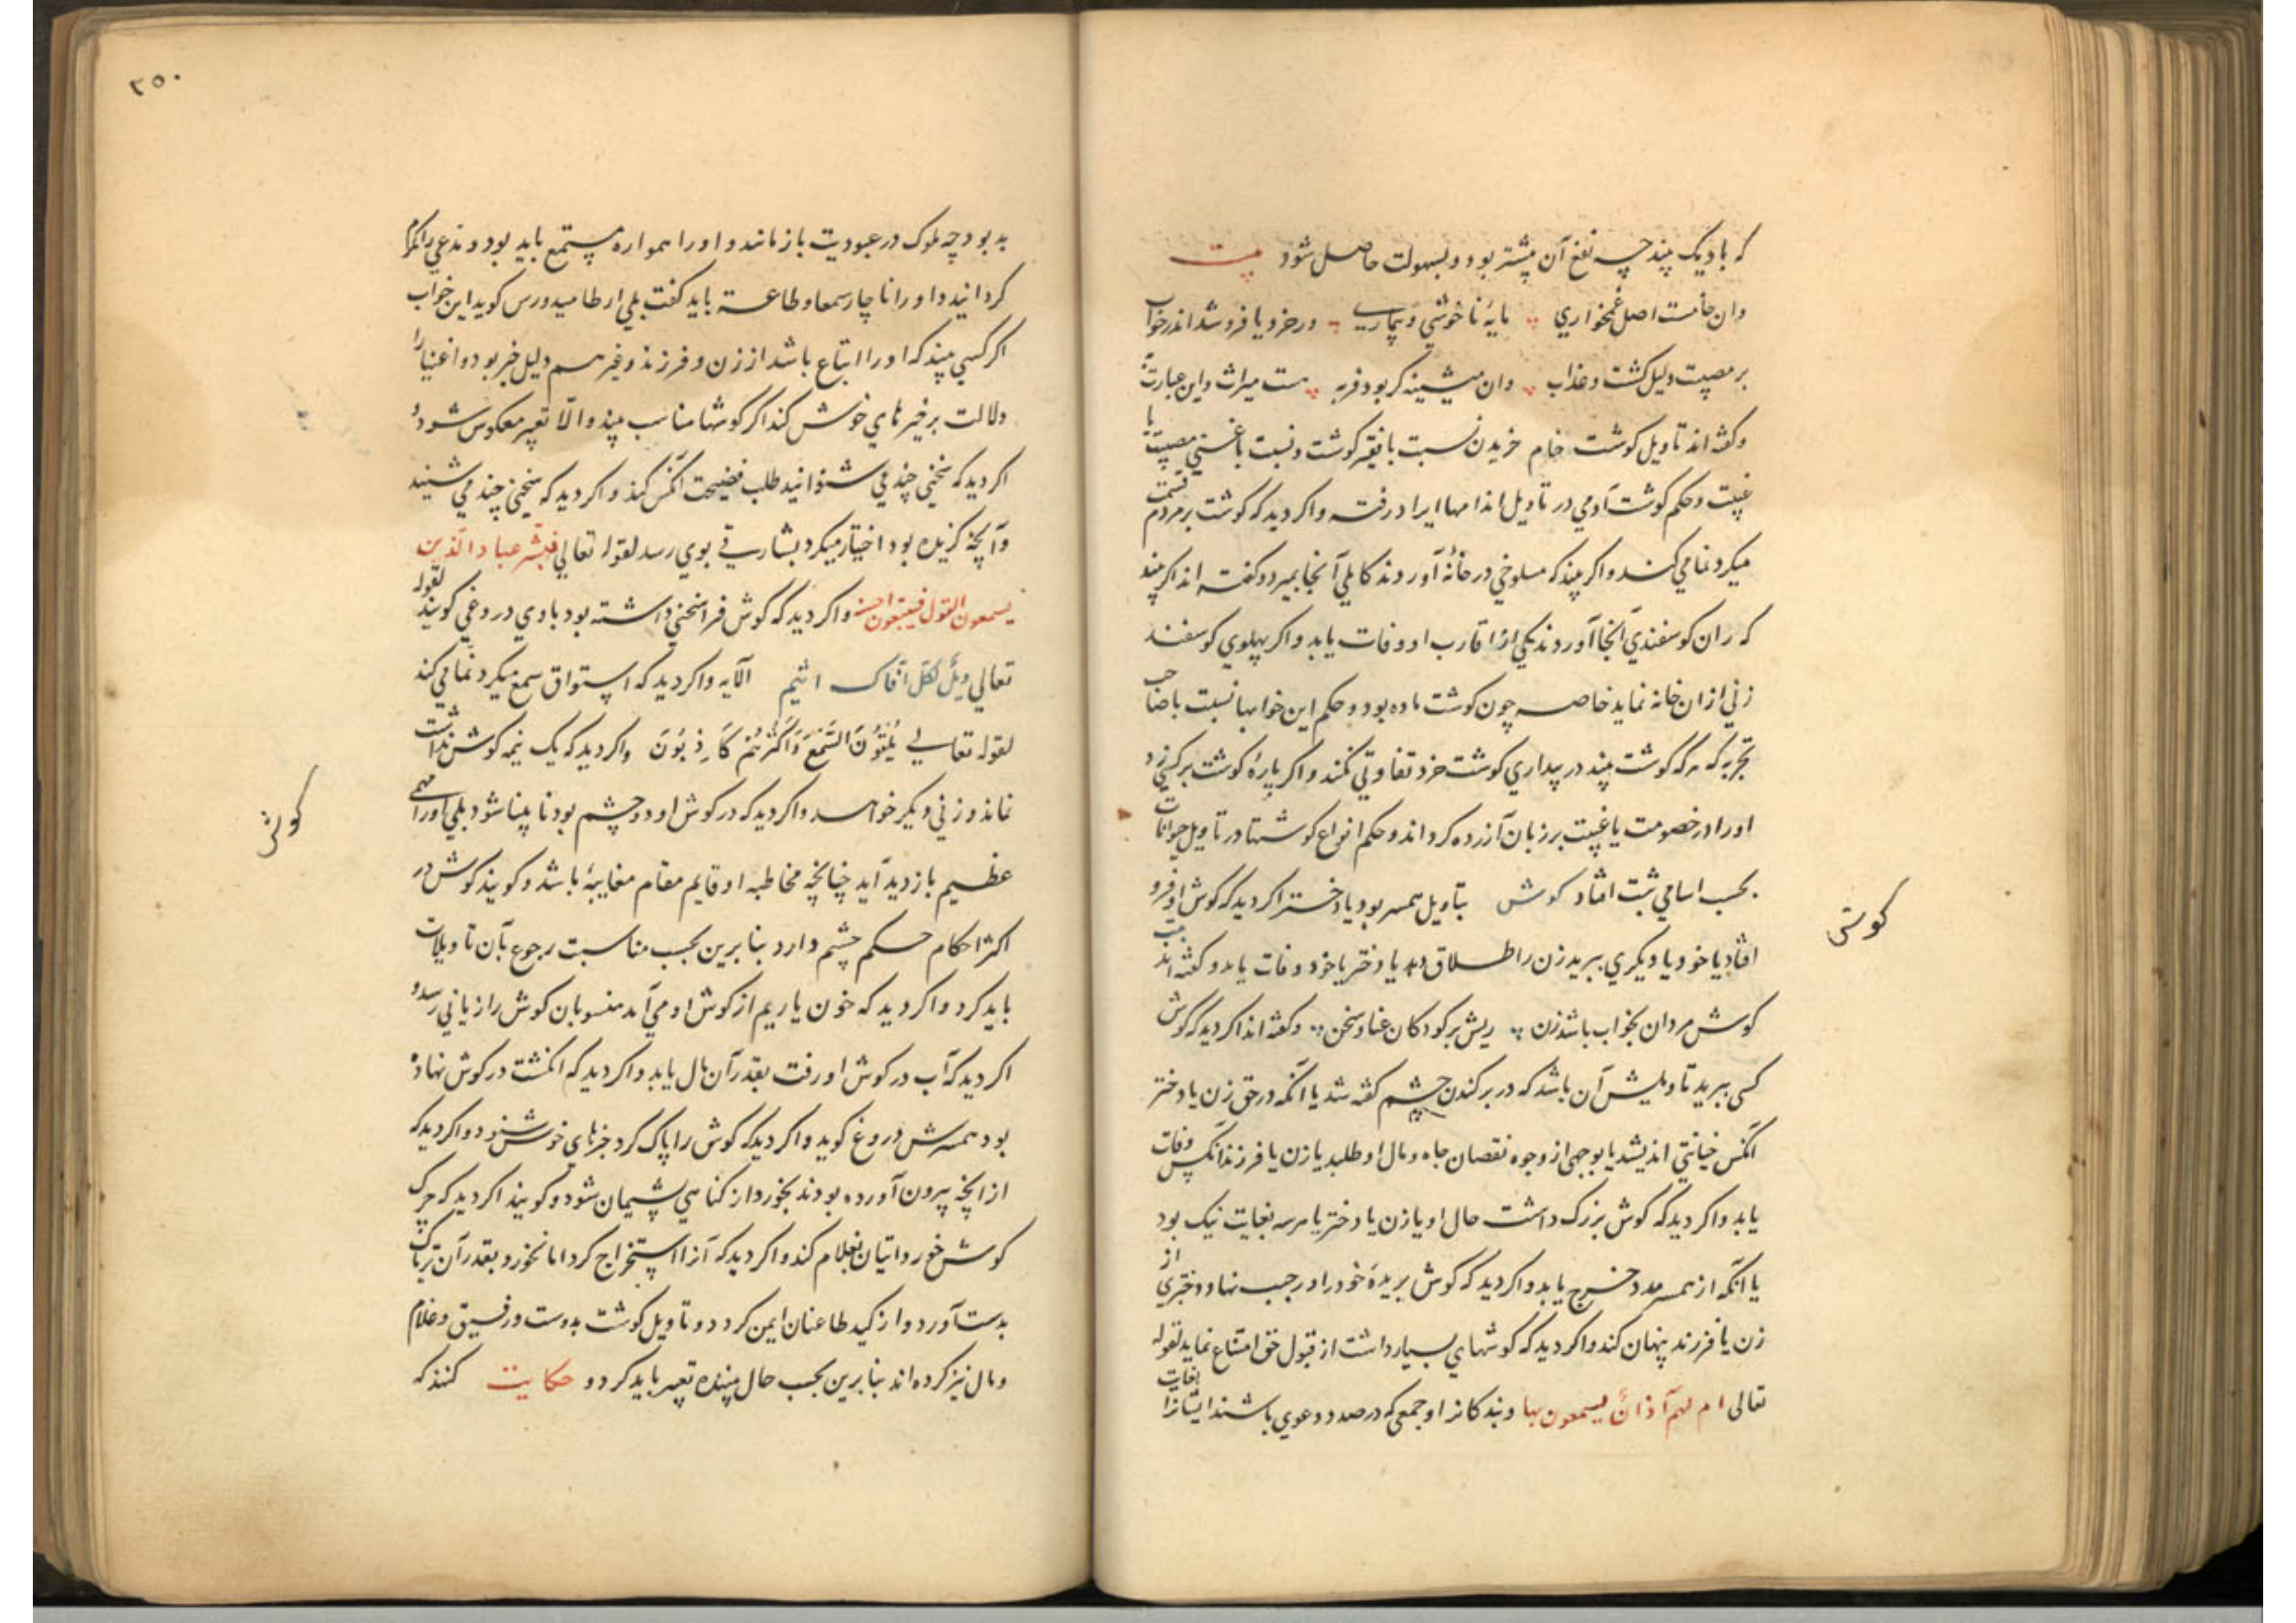 که با دیک پیند چه نفع آن بیشتر بود و بسهولت حاصل شود بیت
وان خامست اصل غمخواری مایهٔ ناخوشی و بیماری ور خرد یا فروشد اندر خواب
بر مصیبت دلیل کشت و عذاب وان میشینه کر بود فربه هست میراث واین عبارت
وکفته اند تاویل کوشت خام خریدن نسبت با فقیر کوشت و نسبت با غنی مصیبت یا
غیبت و حکم کوشت آدمی در تاویل اندامها ایراد رفته واکر دید که کوشت بر مردم قسمت
میکرد نمامی کند واکر بیند که مسلوخی در خانهٔ آوردند کاملی آنجا بمیرد وکفته اند اکر بیند
که ران کوسفندی آنجا آوردند یکی از اقارب او وفات یابد واکر پهلوی کوسفند
زنی ازان خانه نماید خاصه چون کوشت ماده بود و حکم این خوابها نسبت با صاحب
تجربه که هرکه کوشت بیند در بیداری کوشت خرد تفاوتی نکند واکر پارهٔ کوشت بر کسی زد
اورا در خصومت یا غیبت بر زبان آزرده کرداند و حکم انواع کوشتها در تاویل حیوانات
بحسب اسامی ثبت افتاد کوش بتاویل همسر بود یا دختر اکر دید که کوش او فرو
افتاد یا خود یا دیکری ببرید زن را طلاق دهد یا دختر یا خود وفات یابد و کفته اند بیت
کوش مردان بخواب باشد زن ریش بر کودکان غنا و سخن وکفته اند اکر دید که کوش
کسی ببرید تاویلش آن باشد که در برکندن چشم کفته شد یا آنکه در حق زن یا دختر
آنکس خیانتی اندیشد یا بوجهی از وجوه نقصان جاه و مال او طلبد یا زن یا فرزند آنکس وفات
یابد واکر دید که کوش بزرک داشت حال او یا زن یا دختر یا هر سه بغایت نیک بود
یا آنکه از همسر مدد خرج یابد واکر دید که کوش بریدهٔ خود را در جیب نهاد دختری از
زن یا فرزند پنهان کند واکر دید که کوشهای بسیار داشت از قبول حق امتناع نماید لقوله
تعالی ام لهم آذان یسمعون بها وبندکانرا وجمعی که در صدد دعوی باشند ایشانرا بغایت
کوش
۲۵۰
به بود چه ملوک در عبودیت باز مانند و اورا همواره مستمع باید بود و مدعی را مکرم
کردانید و اورا ناچار سمعا وطاعة باید کفت بلی ارطامیدورس کوید این خواب
اکر کسی بیند که اورا اتباع باشد از زن و فرزند وغیرهم دلیل خیر بود و اغنیا را
دلالت بر خیرهای خوش کند اکر کوشها مناسب بیند والا تعبیر معکوس شود و
اکر دید که سخنی چند می شنوانید طلب فضیحت آنکس کند واکر دید که سخنی چند می شنید
وآنچه کزیده بود اختیار میکرد بشارتی بوی رسد لقوله تعالی فبشر عباد الذین
یسمعون القول فیتبعون احسنه واکر دید که کوش فرا سخنی داشته بود با وی دروغی کویند لقوله
تعالی ویل لکل افاک اثیم الآیه واکر دید که استراق سمع میکرد نمامی کند
لقوله تعالی یلقون السمع واکثرهم کاذبون واکر دید که یک نیمه کوش نداشت
نماند و زنی دیکر خواهد واکر دید که در کوش او دو چشم بود نابینا شود بلی اورا مهمی
عظیم بازدید آید چنانچه مخاطبه او قایم مقام معاینه باشد وکویند کوش در
اکثر احکام حکم چشم دارد بنابرین بحسب مناسبت رجوع بآن تاویلات
باید کرد واکر دید که خون یا ریم از کوش او می آمد منسوبان کوش را زیانی رسد و
اکر دید که آب در کوش او رفت بقدر آن مال یابد واکر دید که انکشت در کوش نهاده
بود همسرش دروغ کوید واکر دید که کوش را پاک کرد خبرهای خوش شنود واکر دید که
از آنچه بیرون آورده بودند بخورد از کناهی پشیمان شود وکویند اکر دید که چرک
کوش خورد اتیان بغلام کند واکر دید که آنرا استخراج کرد اما نخورد بقدر آن تریاک
بدست آورد و از کید طاعنان ایمن کردد و تاویل کوشت بدوست و رفیق و غلام
و مال نیز کرده اند بنابرین بحسب حال بیننده تعبیر باید کرد و حکایت کنند که
کوش